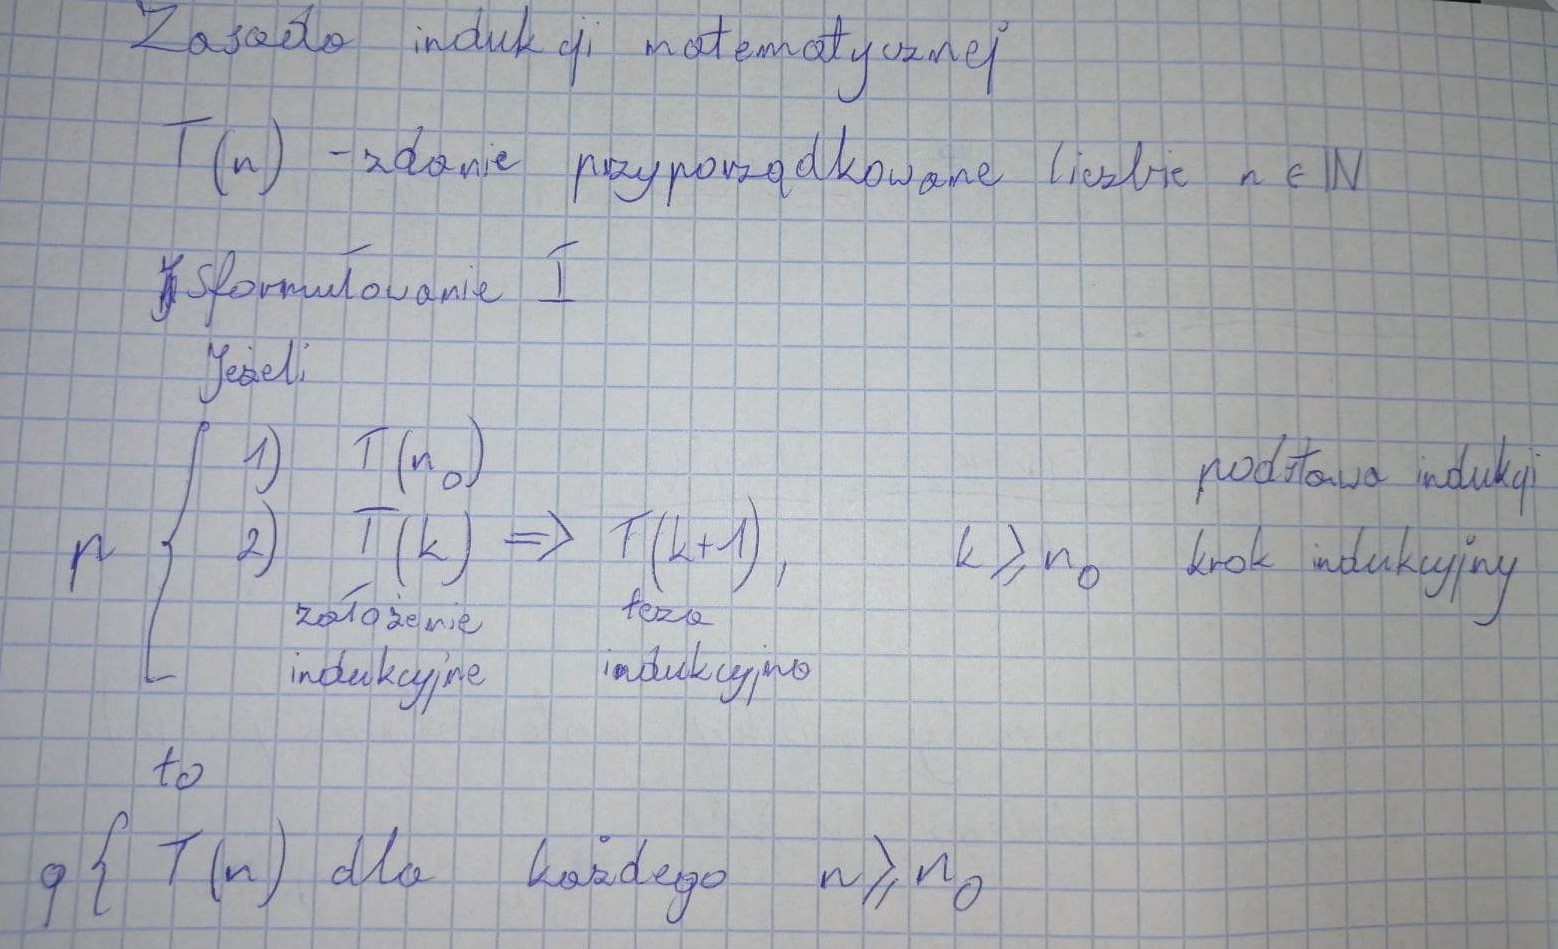 Zasada indukcji matematycznej
T(n) - zdanie przyporządkowane liczbie n ∈ ℕ
Sformułowanie I
Jeżeli
1) T(n₀) podstawa indukcji
p { 2) T(k) => T(k+1), k ⩾ n₀ krok indukcyjny
założenie teza
indukcyjne indukcyjna
to
q { T(n) dla każdego n ⩾ n₀